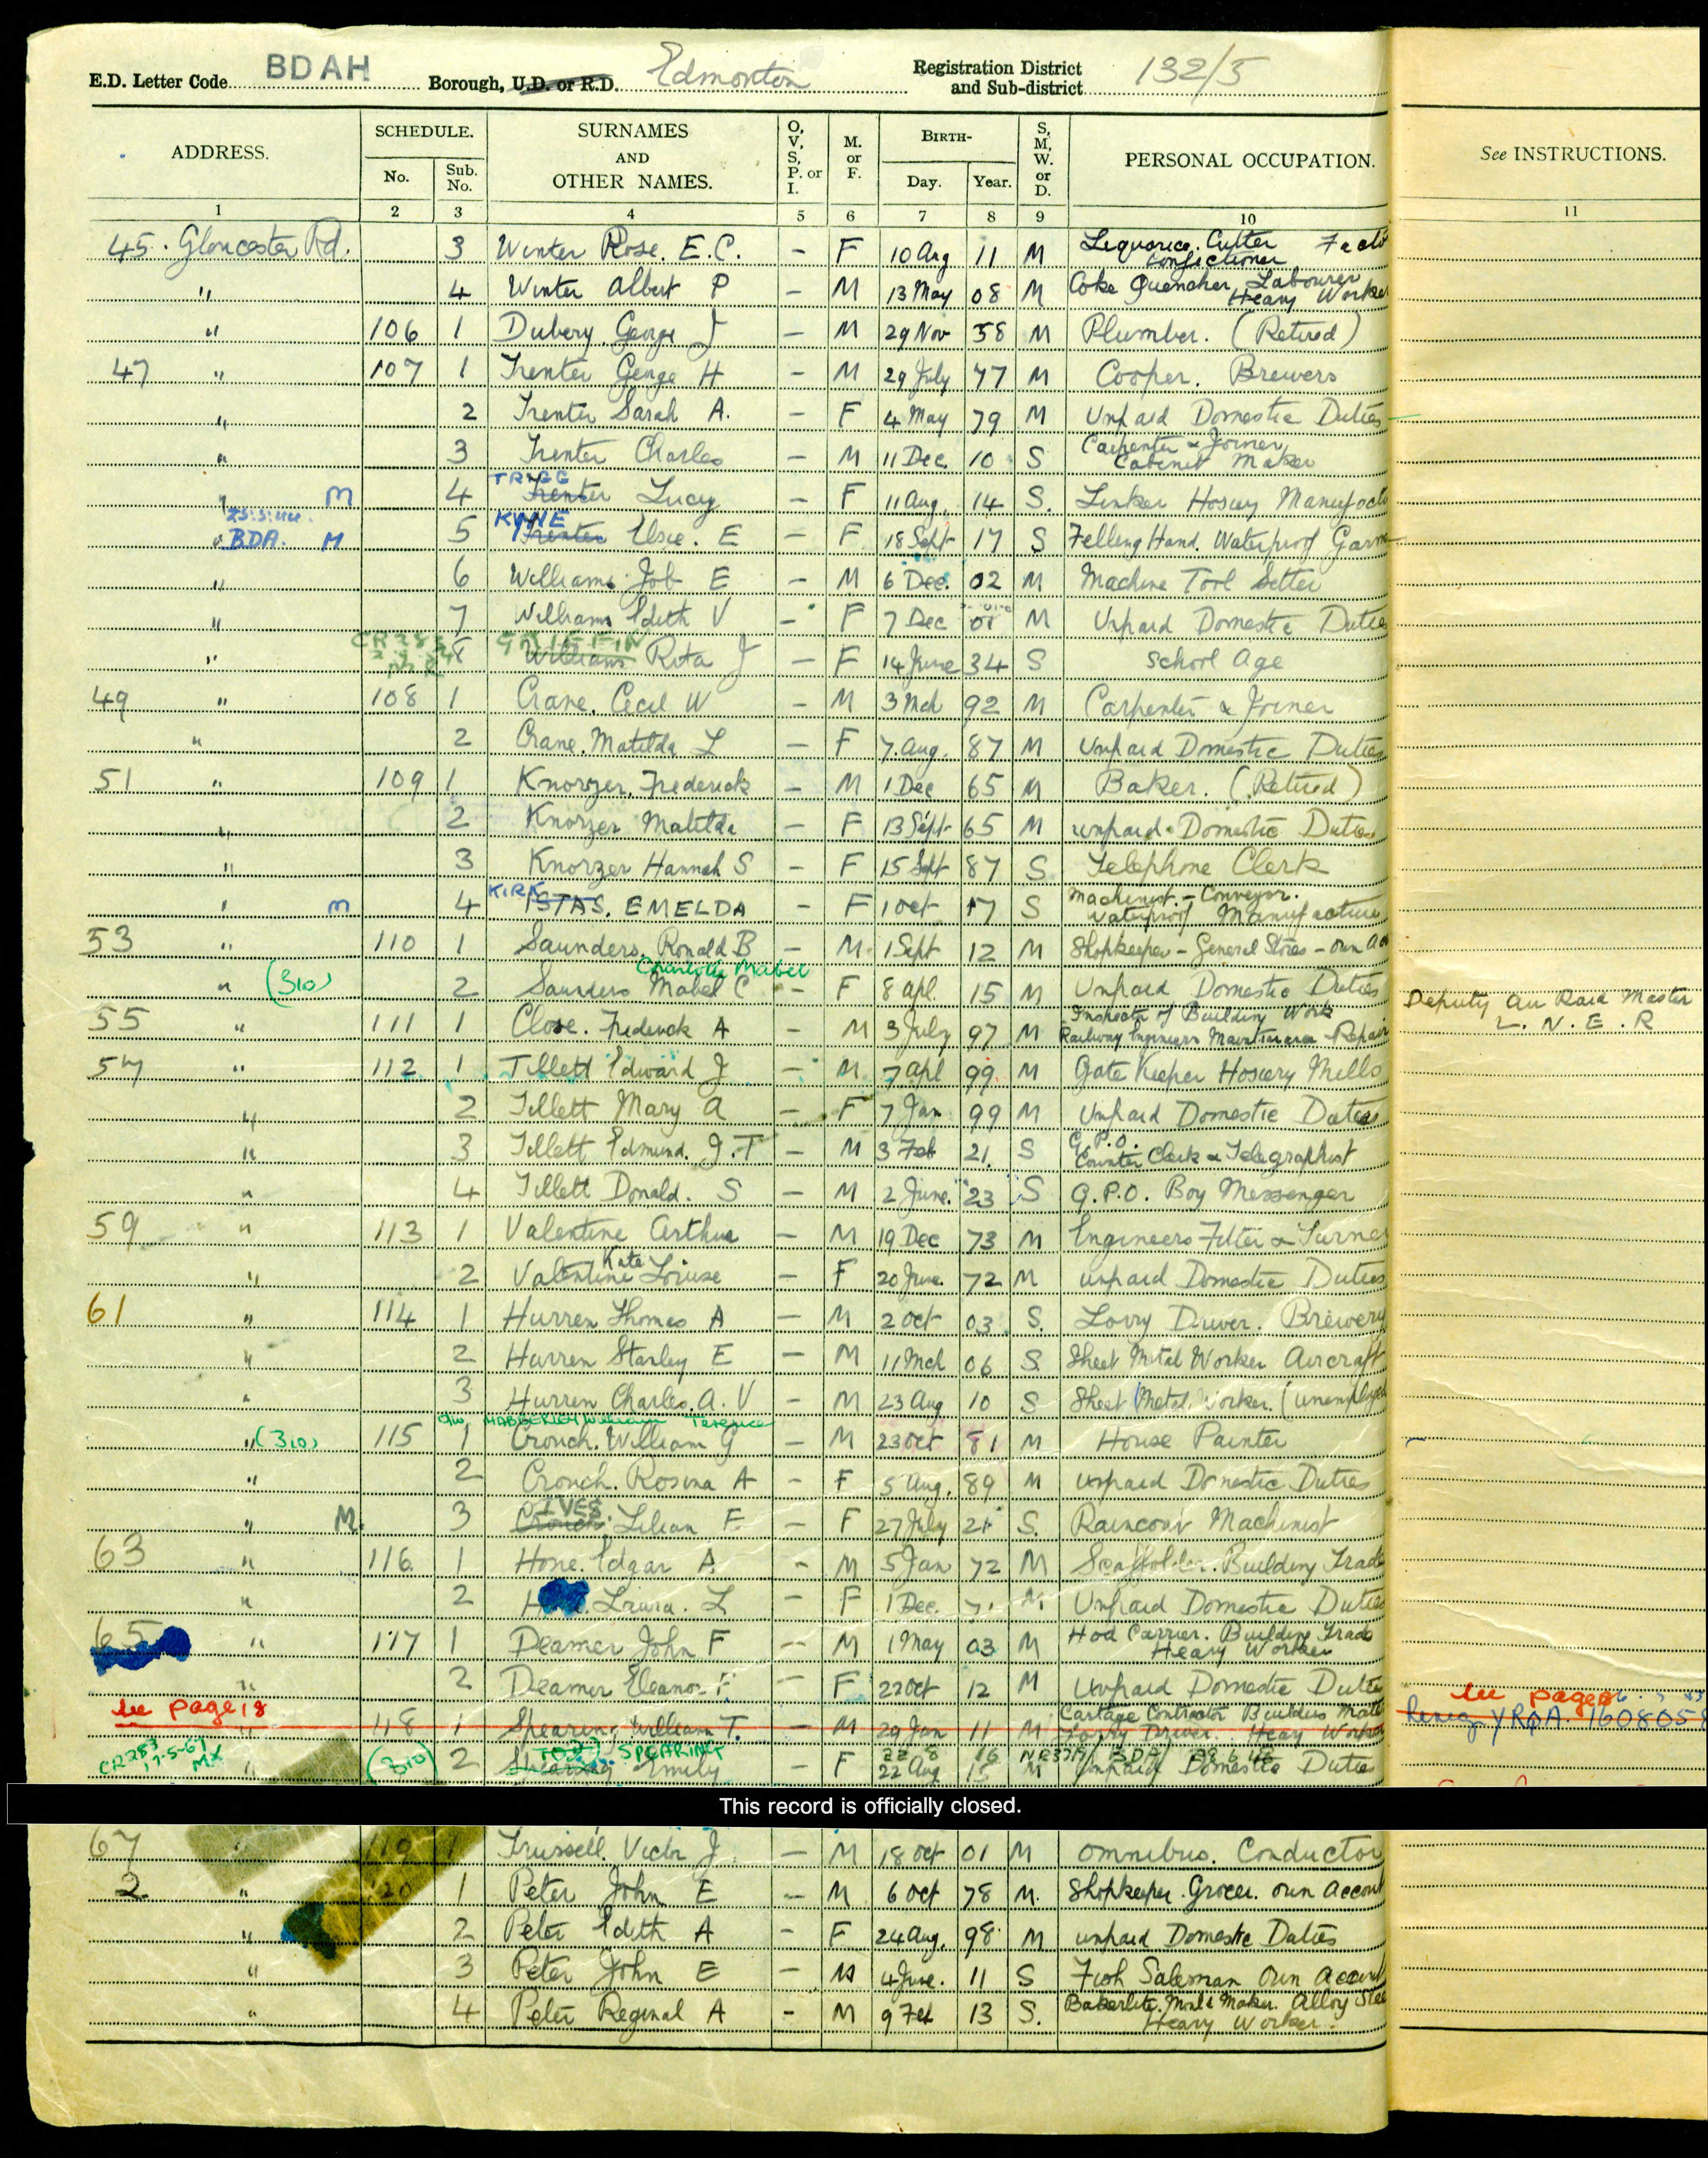 E.D. Letter Code BDAH Borough, U.D. or R.D. Edmonton Registration District and Sub-district 132/5
ADDRESS. SCHEDULE. No. Sub. No. SURNAMES AND OTHER NAMES. O, V, S, P. or I. M. or F. BIRTH- Day. Year. S, M, W. or D. PERSONAL OCCUPATION. See INSTRUCTIONS.
1 2 3 4 5 6 7 8 9 10 11
45. Gloucester Rd. 3 Winter Rose. E.C. - F 10 Aug 11 M Liquorice Cutter Confectioner
" 4 Winter Albert P - M 13 May 08 M Coke Quencher Labourer Heavy Worker
" 106 1 Dubery George J - M 29 Nov 58 M Plumber. (Retired)
47 " 107 1 Trenter George H - M 29 July 77 M Cooper. Brewers
" 2 Trenter Sarah A. - F 4 May 79 M Unpaid Domestic Duties
" 3 Trenter Charles - M 11 Dec 10 S Carpenter & Joiner Cabinet Maker
TRIGG
" M 4 Trenter Lucy - F 11 Aug. 14 S. Linker Hosiery
KYNE
" BDA. M 5 Trenter Elsie. E - F 18 Sept 17 S Felling Hand. Waterproof
" 6 Williams Job E - M 6 Dec. 02 M Machine Tool Setter
" 7 Williams Edith V - F 7 Dec 01 M Unpaid Domestic Duties
GRIFFIN
" 8 Williams Rita J - F 14 June 34 S School Age
49 " 108 1 Crane. Cecil W - M 3 Mch 92 M Carpenter & Joiner
" 2 Crane. Matilda L - F 7. Aug. 87 M Unpaid Domestic Duties
51 " 109 1 Knorzer. Frederick - M 1 Dec 65 M Baker. (Retired)
" 2 Knorzer Matilda - F 13 Sept 65 M Unpaid Domestic Duties
" 3 Knorzer Hannah S - F 15 Sept 87 S Telephone Clerk
KIRK
" M 4 ISTAS. EMELDA - F 1 Oct 17 S Machinist - Conveyor. Waterproof Manufacture
53 " 110 1 Saunders. Ronald B - M. 1 Sept 12 M Shopkeeper - General Stores - own
Charlotte Mabel
" (310) 2 Saunders Mabel C - F 8 Apl. 15 M Unpaid Domestic Duties
55 " 111 1 Close. Frederick A - M 3 July 97 M Inspector of Building Work Railway Engineers Maintenance & Repair Deputy Air Raid Master L.N.E.R
57 " 112 1 Tillett Edward J - M. 7 Apl 99 M Gate Keeper Hosiery Mills
" 2 Tillett Mary A - F 7 Jan 99 M Unpaid Domestic Duties
" 3 Tillett Edmund. J.T - M 3 Feb 21. S G.P.O. Counter Clerk & Telegraphist
" 4 Tillett Donald. S - M 2 June. 23 S G.P.O. Boy Messenger
59 " 113 1 Valentine Arthur - M 19 Dec 73 M Engineers Fitter & Turner
Kate
" 2 Valentine Louise - F 20 June. 72 M unpaid Domestic Duties
61 " 114 1 Hurren Thomas A - M 2 Oct 03 S. Lorry Driver. Brewery
" 2 Hurren Stanley E - M 11 Mch 06 S. Sheet Metal Worker Aircraft
" 3 Hurren Charles. A. V - M 23 Aug 10 S Sheet Metal Worker. (unemployed
William Terence
" (310) 115 1 Crouch. William G - M 23 Oct 81 M House Painter
" 2 Crouch. Rosina A - F 5 Aug. 89 M unpaid Domestic Duties
IVES.
" M. 3 Crouch. Lilian E - F 27 July 21 S. Raincoat Machinist
63 " 116. 1 Hone. Edgar A. - M 5 Jan 72 M Scaffolder. Building Trade
" 2 Laura. L - F 1 Dec. M Unpaid Domestic Duties
65 " 117 1 Deamer John F - M 1 May 03 M Hod Carrier. Building Trade Heavy Worker
" 2 Deamer Eleanor F - F 22 Oct 12 M Unpaid Domestic Duties
See page 18 118 1 Spearing William T. - M 29 Jan 11 M Cartage Contractor Builders Lorry Driver. Heavy Worker See page YRQA. 160805
TODD SPEARING 22 8 16 NR BDA
CR283 17-5-67 MX " (310) 2 Spearing Emily - F 22 Aug 15 M Unpaid Domestic Duties
This record is officially closed.
67 " 119 1 Trussell. Victor J. - M 18 Oct 01 M Omnibus. Conductor
2 " 120 1 Peter John E - M 6 Oct 78 M. Shopkeeper. Grocer. own account
" 2 Peter Edith A - F 24 Aug. 98 M unpaid Domestic Duties
" 3 Peter John E - M 4 June. 11 S Fish Salesman Own Account
" 4 Peter Reginal A - M 9 Feb 13 S. Bakerlite. Mould Maker. Alloy Steel Heavy Worker.